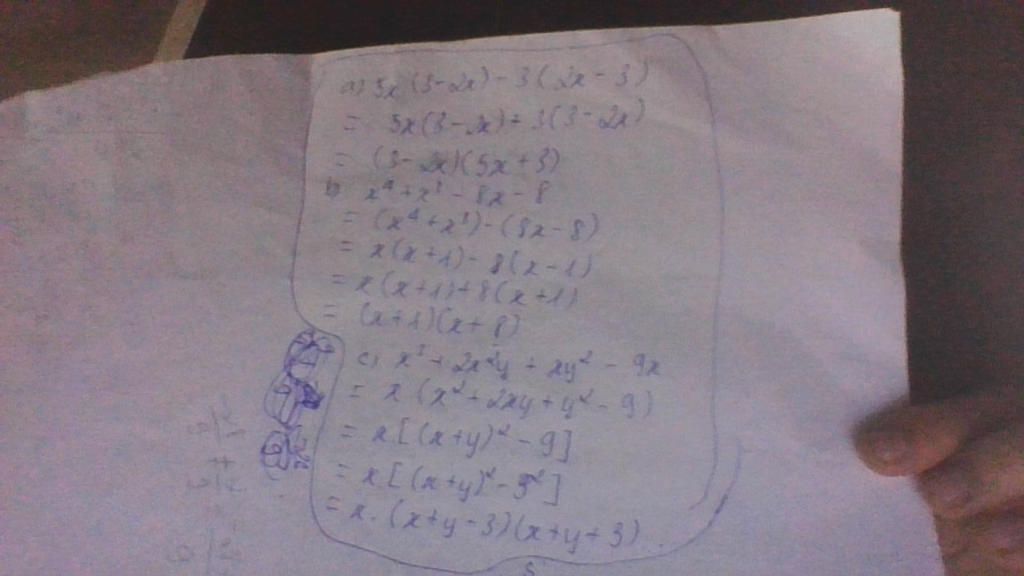 a) 5x(3-2x)-3(2x-3)
= 5x(3-2x)+3(3-2x)
= (3-2x)(5x+3)
b) x⁴+x³-8x-8
= (x⁴+x³)-(8x-8)
= x(x+1)-8(x-1)
= x(x+1)+8(x+1)
= (x+1)(x+8)
c) x³+2x²y+xy²-9x
= x(x²+2xy+y²-9)
= x[(x+y)²-9]
= x[(x+y)²-3²]
= x.(x+y-3)(x+y+3)